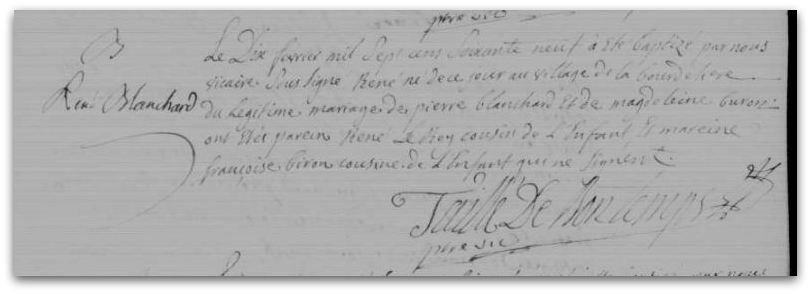 ptre vic
B
René Blanchard
Le Dix fevrier mil Sept cens Soixante neuf à eté baptizé par nous
vicaire Sous signé René né de ce jour au village de la bourdeliere
du legitime mariage de pierre blanchard Et de magdeleine buron
ont Etés parein René Le Roy cousin de L'Enfant Et mareine
françoise biron cousine de L'Enfant qui ne signent
Taillé De Bontemps
ptre vic